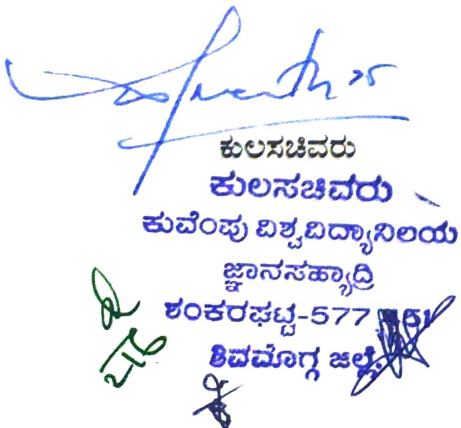 ಕುಲಸಚಿವರು
ಕುಲಸಚಿವರು
ಕುವೆಂಪು ವಿಶ್ವವಿದ್ಯಾನಿಲಯ
ಜ್ಞಾನಸಹ್ಯಾದ್ರಿ
ಶಂಕರಘಟ್ಟ-577
ಶಿವಮೊಗ್ಗ ಜಿಲ್ಲೆ.